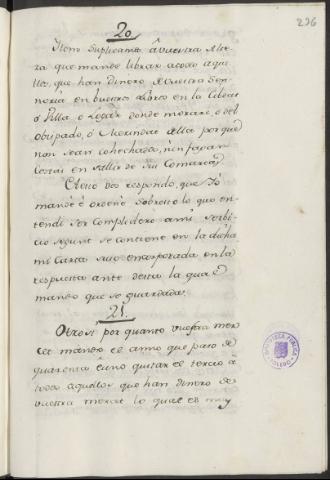 236
20
Item Suplicamos â vuestra Alte
za que mande librar acoso aqui
llos, que han dinero de vuestra Seno
ria, en buestros Libros en la Cibdat
ô Villa o Logar donde morare, ô del
obispado, ô Merindat della porque
non sean cohechados, nin fagan
Costas en sallir de sus Comarcas
A esto vos respondo, que Yo
mandè è ordenè sobresto lo que en
tendi ser complidero a mi serbi
cio segunt se contiene en la dicha
mi Carta suso encorporada en la
respuesta ante desta la qual
mando que se guardada.
21.
Otrosi por quanto vuestra mer
cet mando el anno que paso de
quarenta è uno quitar el tercio à
todos aquellos que han dinero de
vuestra mercet lo qual es muy
BIBLIOTECA PUBLICA
TOLEDO